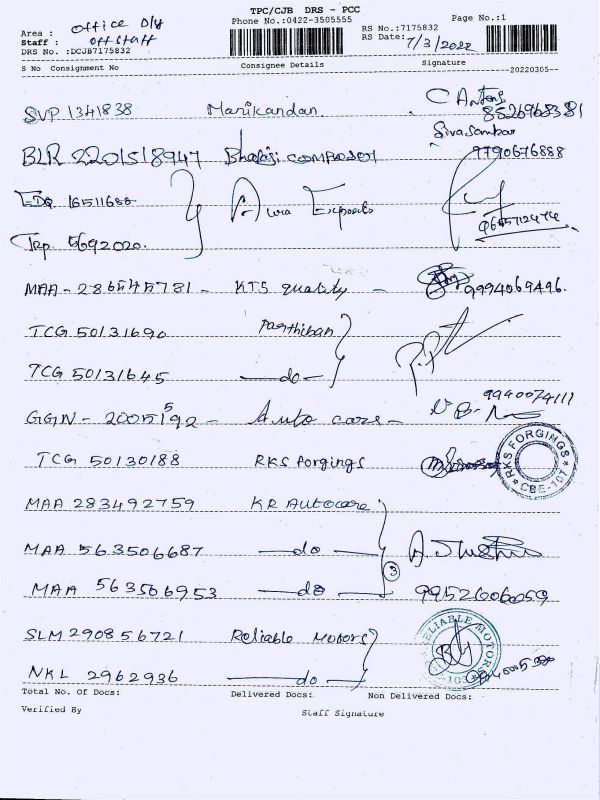 TPC/CJB DRS - PCC
Phone No.:0422-3505555
Page No.:1
Area : Office Dly
Staff : Offstaff
DRS No. :DCJB7175832
RS No.:7175832
RS Date: 7/3/2022
S No Consignment No Consignee Details Signature
20220305
SVP 1341838 Manikandan C Antony
Sivasankar
BLR 2201518947 Bhalaji composer 9790676888
16511680
Exports
Trp. 5692020.
MAA - 286545781 - KTS quality - 9994069496.
TCG 50131690 Parthiban
TCG 50131645 —do—
GGN - 2005192 - Auto care - 9940074111
5
TCG 50130188 RKS forgings
RKS FORGINGS
CBE-107
MAA 283492759 KR Autocare
MAA 563506687 —do—
3
MAA 563506953 —do— 9952606059
SLM 290856721 Reliable Motors
RELIABLE MOTORS
NKL 2962936 —do—
Total No. Of Docs: Delivered Docs: Non Delivered Docs:
Verified By Staff Signature